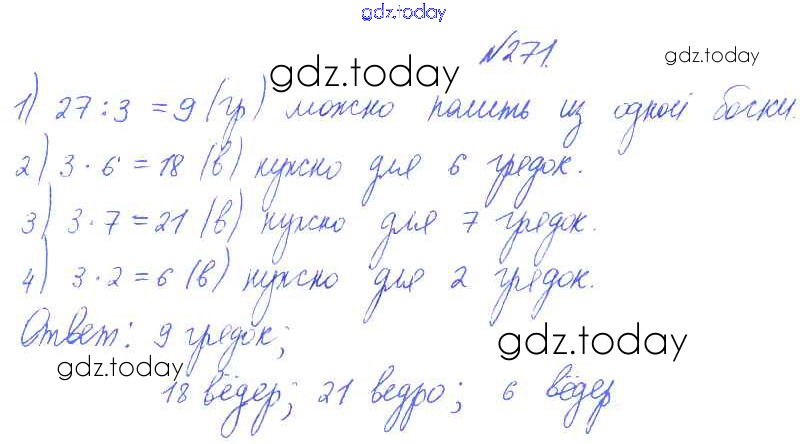 gdz.today
№271.
gdz.today
gdz.today
1) 27:3 = 9 (гр) можно полить из одной бочки.
2) 3·6 = 18 (в) нужно для 6 грядок.
3) 3·7 = 21 (в) нужно для 7 грядок.
4) 3·2 = 6 (в) нужно для 2 грядок.
Ответ: 9 грядок;
gdz.today
gdz.today
18 вёдер; 21 ведро; 6 вёдер